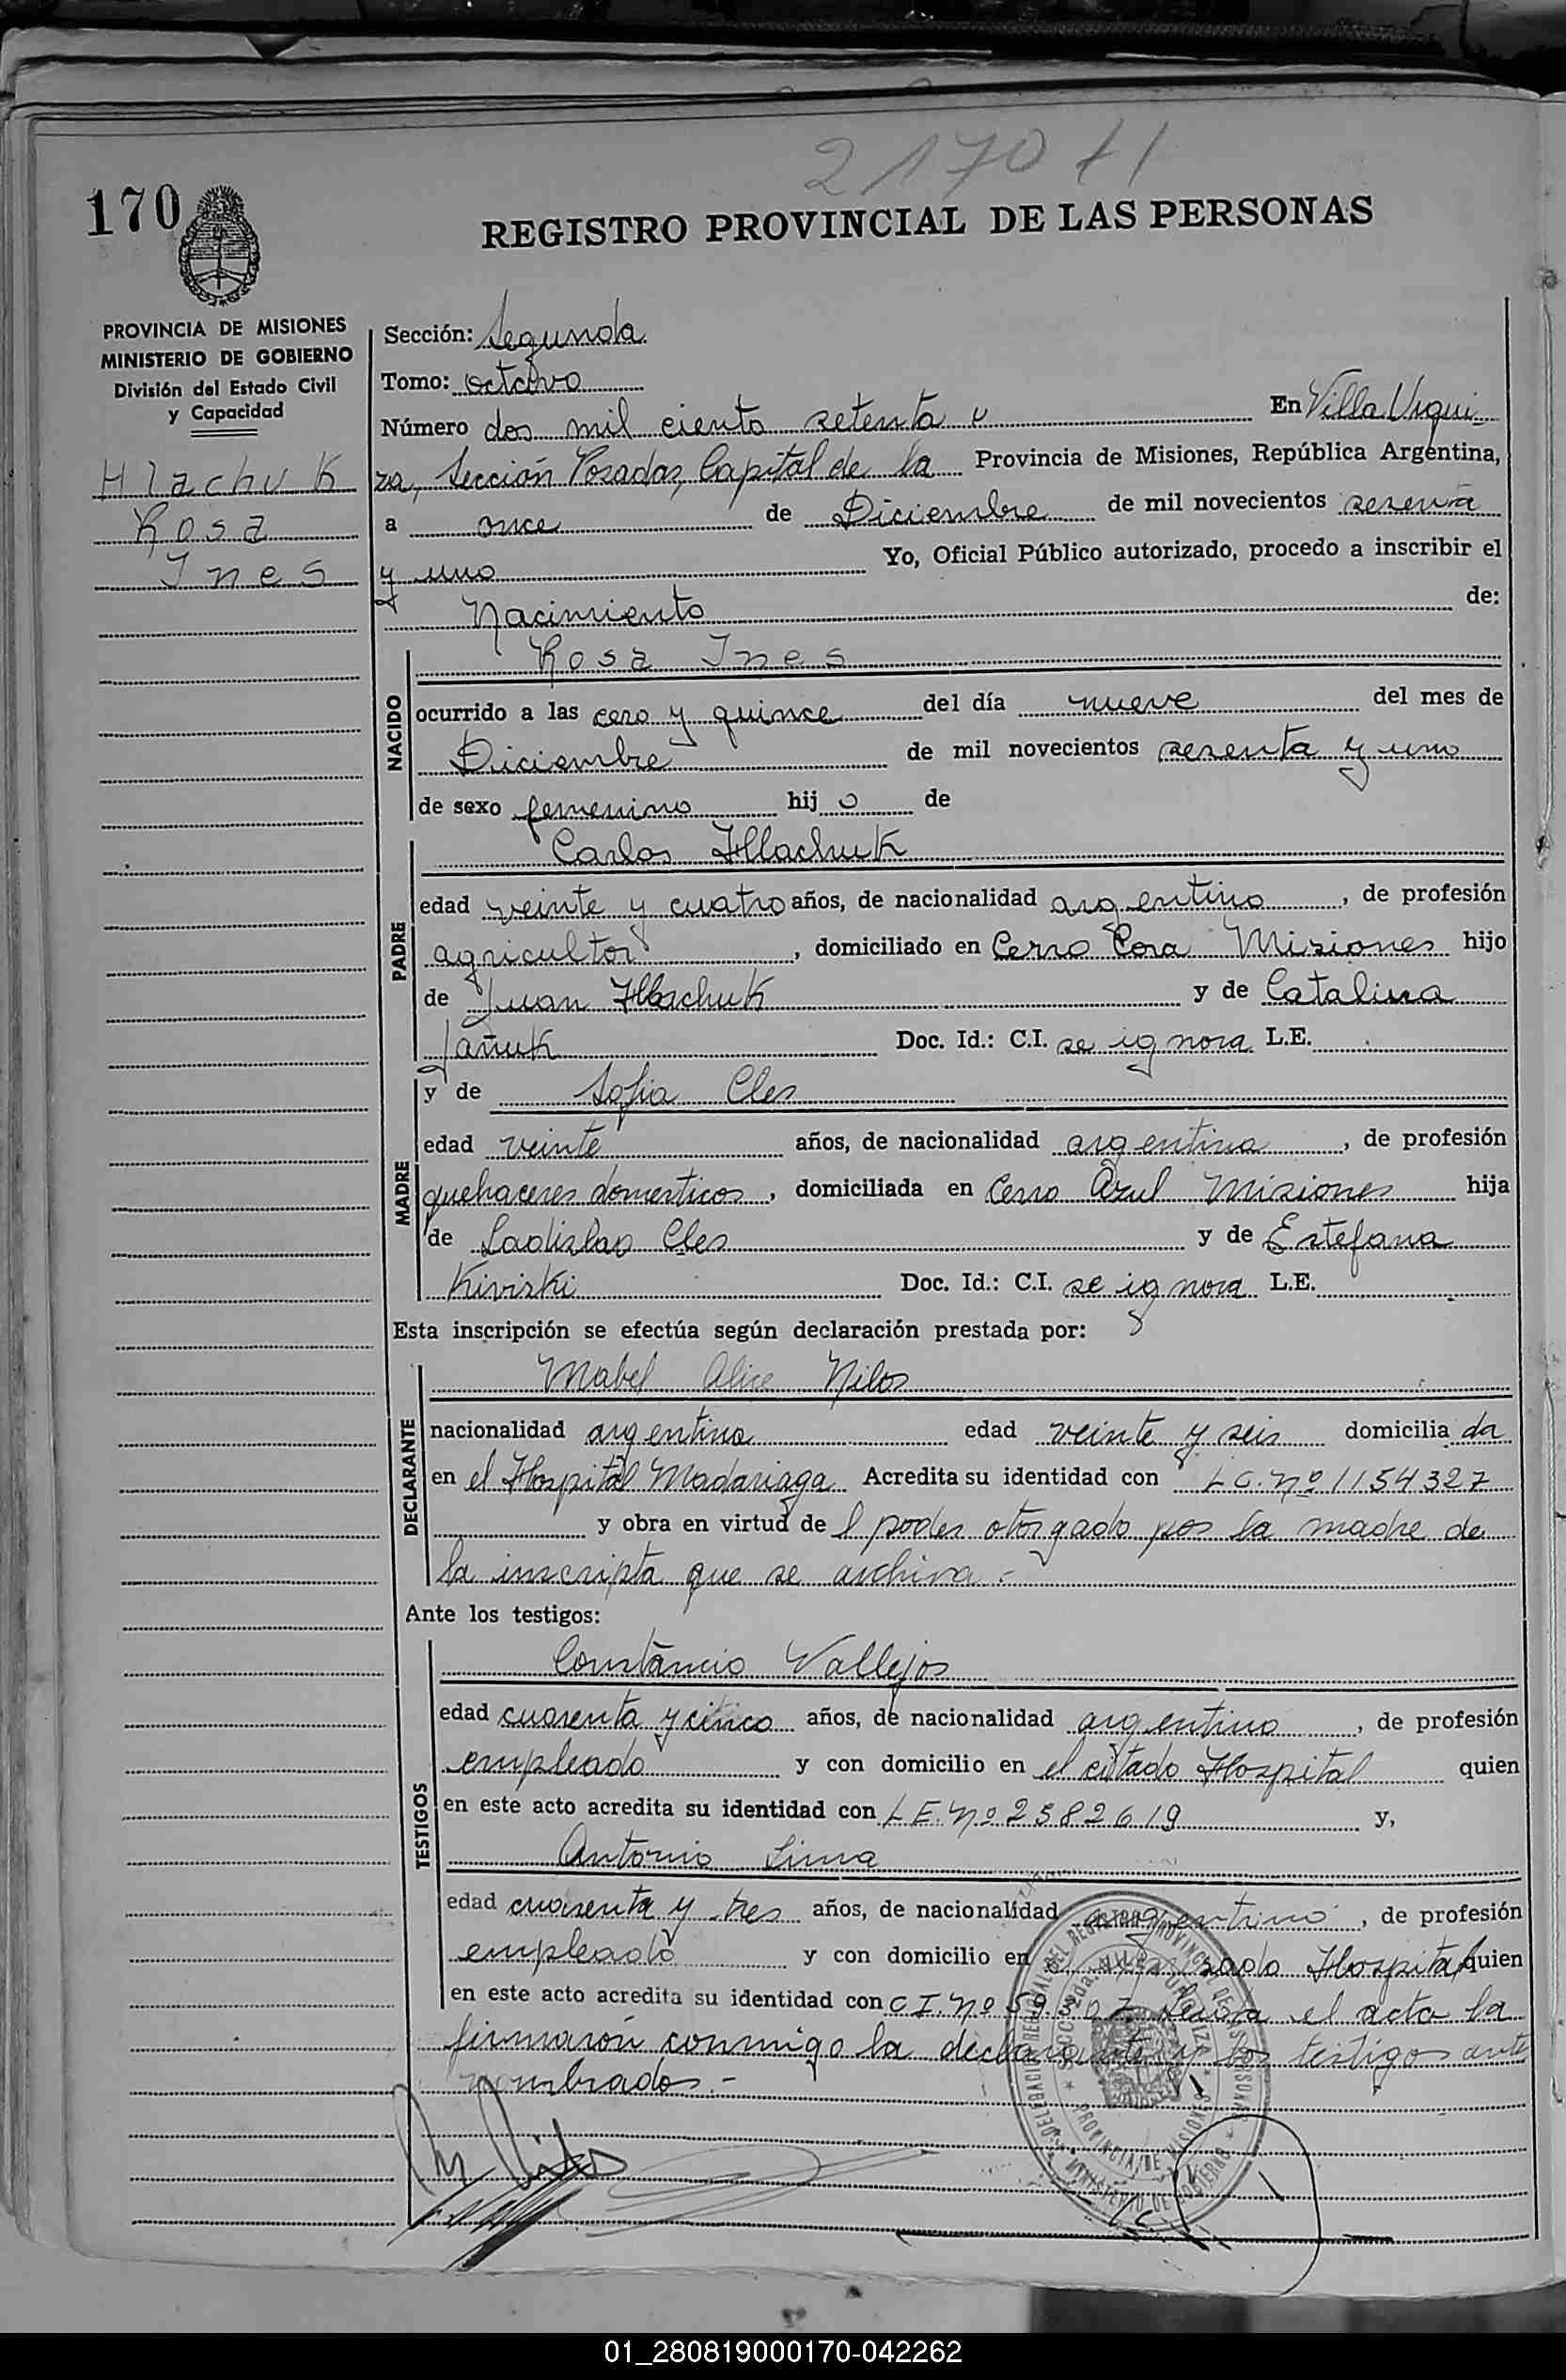 2170 t1
170
REGISTRO PROVINCIAL DE LAS PERSONAS
PROVINCIA DE MISIONES
MINISTERIO DE GOBIERNO
División del Estado Civil
y Capacidad
Hlachuk
Rosa
Ines
Sección: Segunda
Tomo: octavo
Número dos mil ciento setenta En Villa Urqui
za, Sección Posadas, Capital de la Provincia de Misiones, República Argentina,
a once de Diciembre de mil novecientos sesenta
y uno Yo, Oficial Público autorizado, procedo a inscribir el
Nacimiento de:
NACIDO
Rosa Ines
ocurrido a las cero y quince del día nueve del mes de
Diciembre de mil novecientos sesenta y uno
de sexo femenino hij o de
PADRE
Carlos Hlachuk
edad veinte y cuatro años, de nacionalidad argentino, de profesión
agricultor, domiciliado en Cerro Cora Misiones hijo
de Juan Hlachuk y de Catalina
Jañuk Doc. Id.: C.I. se ignora L.E.
MADRE
y de Sofia Cles
edad veinte años, de nacionalidad argentina, de profesión
quehaceres domesticos, domiciliada en Cerro Azul Misiones hija
de Ladislao Cles y de Estefana
Kiviski Doc. Id.: C.I. se ignora L.E.
Esta inscripción se efectúa según declaración prestada por:
DECLARANTE
Mabel Alice Nilos
nacionalidad argentina edad veinte y seis domicilia da
en el Hospital Madariaga Acredita su identidad con L C. Nº 1154327
y obra en virtud de l poder otorgado por la madre de
la inscripta que se archiva.-
Ante los testigos:
TESTIGOS
Constancio Vallejos
edad cuarenta y cinco años, de nacionalidad argentino, de profesión
empleado y con domicilio en el citado Hospital quien
en este acto acredita su identidad con L E. Nº 2582619 y,
Antonio Lima
edad cuarenta y tres años, de nacionalidad argentino, de profesión
empleado y con domicilio en el Hospital quien
en este acto acredita su identidad con C I. Nº el acto la
firmaron conmigo la declarante y los testigos ante
nombrados.-
DELEGACION REGIONAL DEL REGISTRO PROVINCIAL DE LAS PERSONAS
SECC. 2da. VILLA URQUIZA
PROVINCIA DE MISIONES
MINISTERIO DE GOBIERNO
01_280819000170-042262